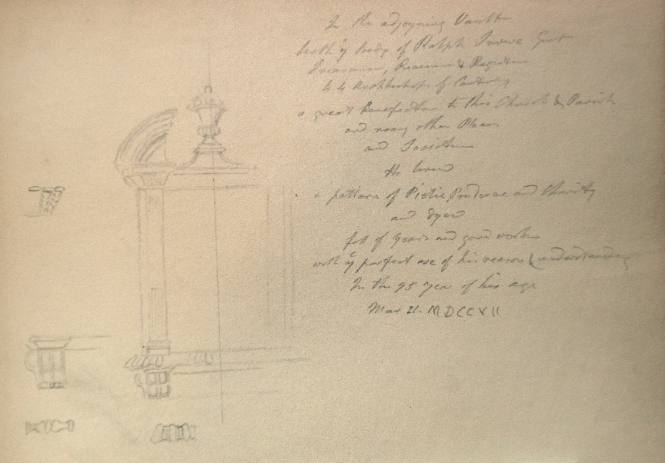 In the adjoyning Vault
lieth yͤ body of Ralph Snowe Gent
Treasurer, Receiver & Register
to 4 Archbishops of Canterbury
a great Benefactor to this Church & Parish
and many other Places
and Societies
He lived
a pattern of Pietie Prudence and Charity
and dyed
full of Years and good works
with yͤ perfect use of his reason & understanding
In the 95 year of his age
Mar 21. MDCCXII